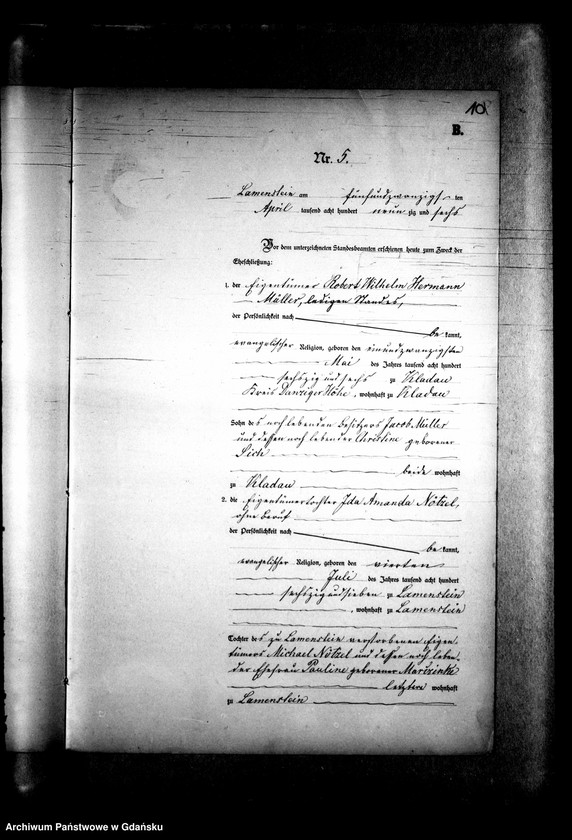 10
B.
Nr. 5.
Lamenstein am fünfundzwanzigsten
April tausend acht hundert neunzig und sechs
Vor dem unterzeichneten Standesbeamten erschienen heute zum Zweck der
Eheschließung:
1. der Eigentümer Robert Wilhelm Hermann
Müller, ledigen Standes,
der Persönlichkeit nach
bekannt,
evangelischer Religion, geboren den einundzwanzigsten
Mai des Jahres tausend acht hundert
sechszig und sechs zu Kladau
Kreis Danziger Höhe, wohnhaft zu Kladau
Sohn des noch lebenden Besitzers Jacob Müller
und dessen noch lebender Christine geborener
beide wohnhaft
zu Kladau
2. die Eigentümertochter Ida Amanda Nötzel,
ohne Beruf
der Persönlichkeit nach
bekannt,
evangelischer Religion, geboren den vierten
Juli des Jahres tausend acht hundert
sechszig und sieben zu Lamenstein
, wohnhaft zu Lamenstein
Tochter des zu Lamenstein verstorbenen Eigen-
tümers Michael Nötzel und dessen noch leben-
der Ehefrau Pauline geborener
letztere wohnhaft
zu Lamenstein
Archiwum Państwowe w Gdańsku